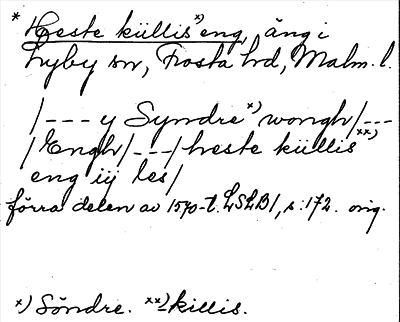 * Heste küllis ˣ⁾ eng, äng i
Lyby sn, Frosta hd, Malm. l.
/--- y Syndre ˣ⁾ wongh /---
/Engh/---/ heste küllis ˣˣ⁾
eng iij les/
förra delen av 1570-t. LSLB 1, s. 172. orig.
ˣ⁾ Söndre. ˣˣ⁾ killis.